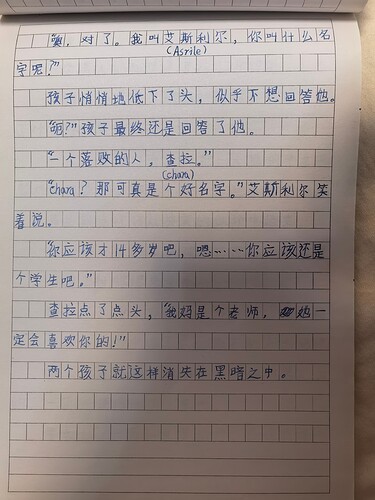 "噢，对了。我叫艾斯利尔，你叫什么名
(Asrile)
字呢？"
孩子悄悄地低下了头，似乎不想回答他。
"呃？"孩子最终还是回答了他。
"一个落败的人，查拉。"
(chara)
"chara？那可真是个好名字。"艾斯利尔笑
着说。
"你应该才14多岁吧，嗯……你应该还是
个学生吧。"
查拉点了点头，"我妈是个老师，她一
定会喜欢你的！"
两个孩子就这样消失在黑暗之中。